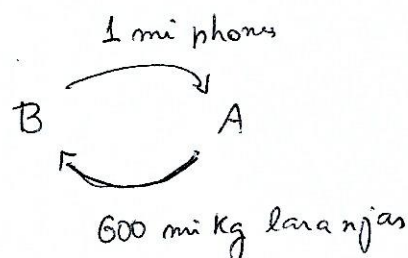 1 mi phones
B A
600 mi Kg laranjas